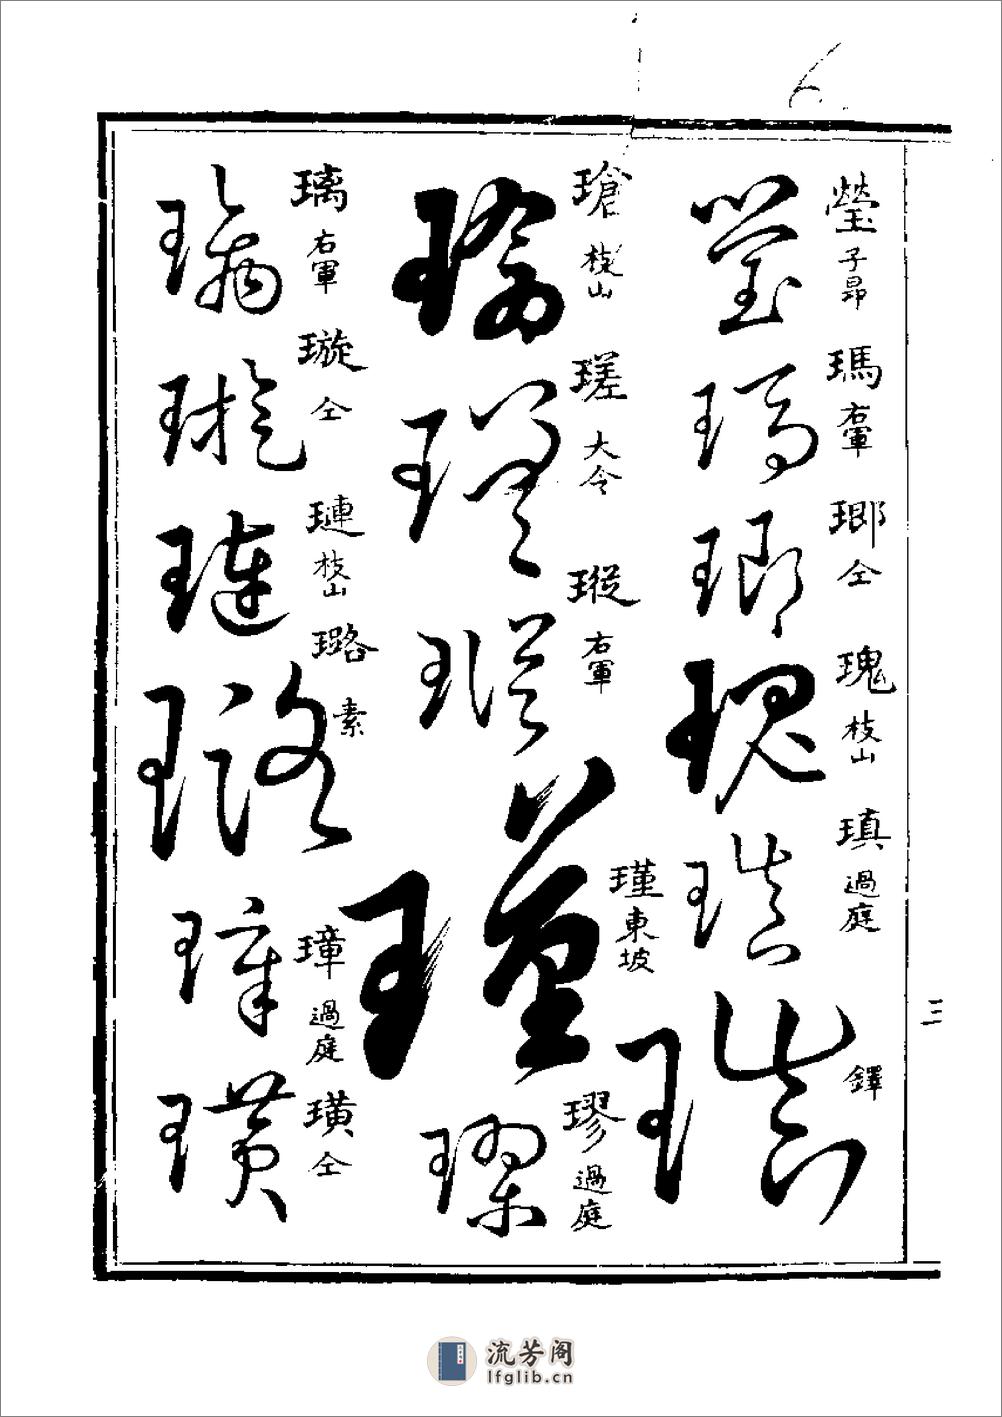 瑩 子昂 瑪 右軍 瑯 仝 瑰 枝山 瑱 過庭 鐸
瑲 枝山 瑳 大令 瑽 右軍 瑾 東坡 璆 過庭
璃 右軍 璇 仝 璉 枝山 璐 素 璋 過庭 璜 仝
三
流芳阁
lfglib.cn